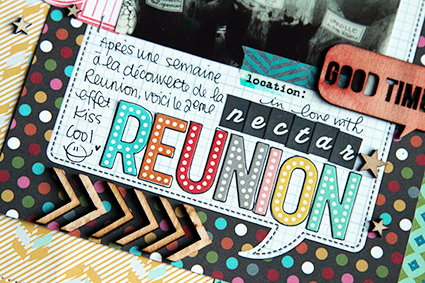 Après une semaine
à la découverte de la
Reunion, voici le 2ème
effet
Kiss
Cool
location:
in love with
nectar
REUNION
GOOD TIME